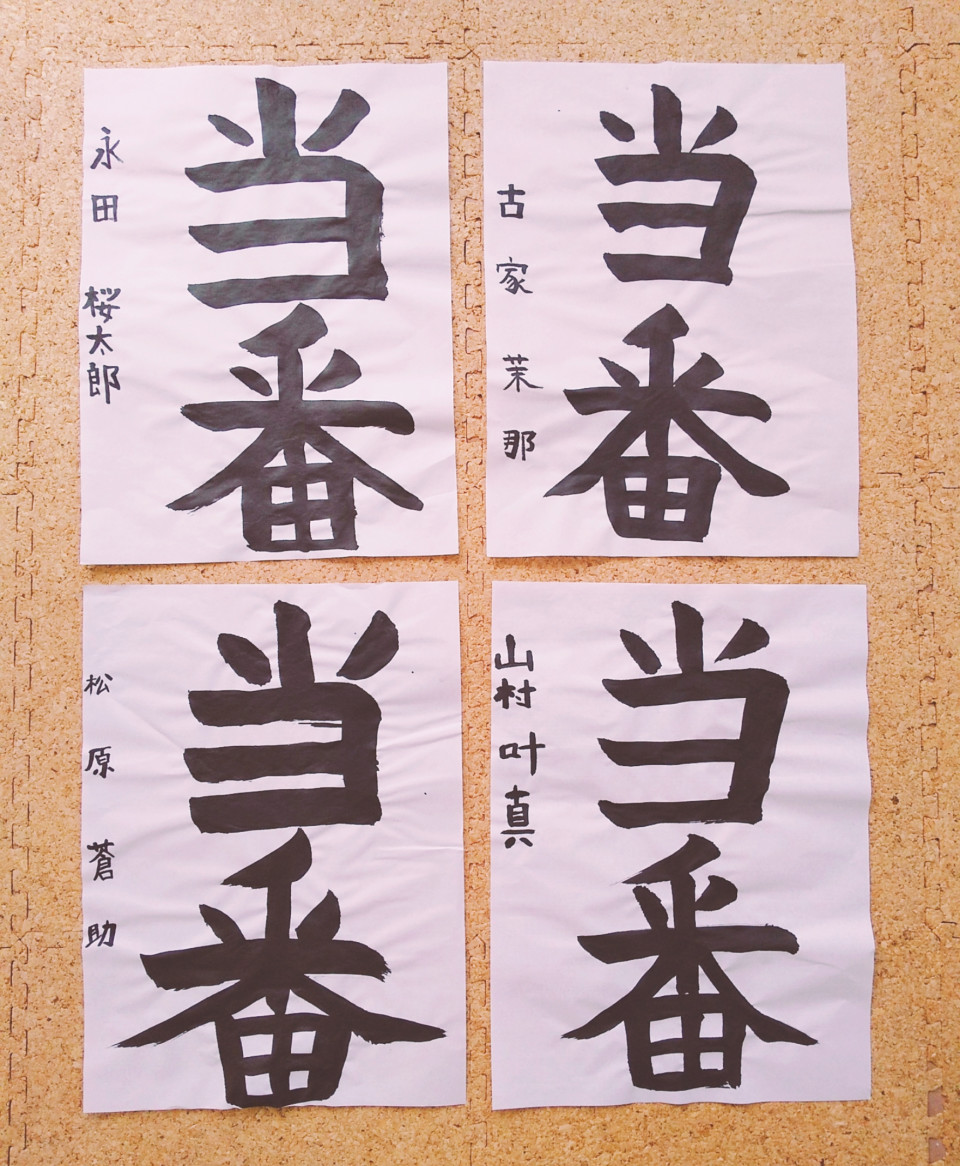 当番
永田 桜太郎
当番
古家 茉那
当番
松原 蒼助
当番
山村 叶真